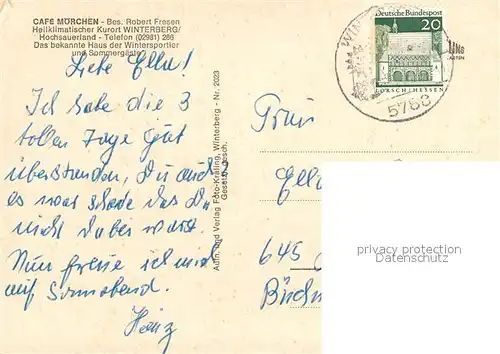 CAFÉ MÖRCHEN - Bes. Robert Fresen
Heilklimatischer Kurort WINTERBERG/
Hochsauerland - Telefon (02981) 266
Das bekannte Haus der Wintersportler
und Sommergäste
Liebe Ella!
Ich habe die 3
tollen Tage gut
überstanden, Du auch?
es war schade das Du
nicht dabei warst.
Nun freue ich mich
auf Sonnabend.
Heinz
Aufn. und Verlag Foto-Kräling, Winterberg - Nr. 2023
Gesetzl. gesch.
Deutsche Bundespost
20
LORSCH/HESSEN
5788
Frau
Ella
645
privacy protection
Datenschutz